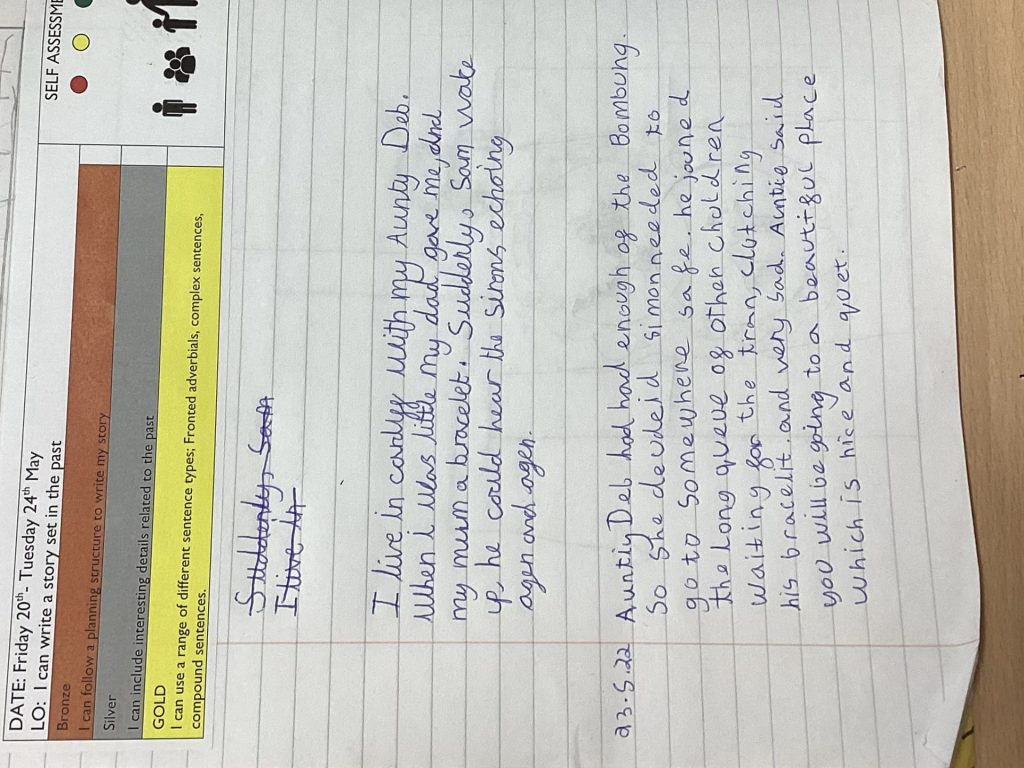 DATE: Friday 20th- Tuesday 24th May
LO: I can write a story set in the past
SELF ASSESSME
Bronze
I can follow a planning structure to write my story
Silver
I can include interesting details related to the past
GOLD
I can use a range of different sentence types; Fronted adverbials, complex sentences,
compound sentences.
Suddenly, Sam
I live in
I live in cardiff with my Aunty Deb.
When i was little my dad gave me, and
my mum a bracelet. Suddenly, Sam wake
up he could hear the sirons echoing
agen and agen.
23.5.22 Auntiy Deb had had enough of the Bombung.
So She decided simon needed to
go to Somewhere safe. he joined
the long queue of other children
waiting for the tran, clutching
his bracelit. and very sad. Antie said
you will be going to a beautiful place
which is nice and qoet.